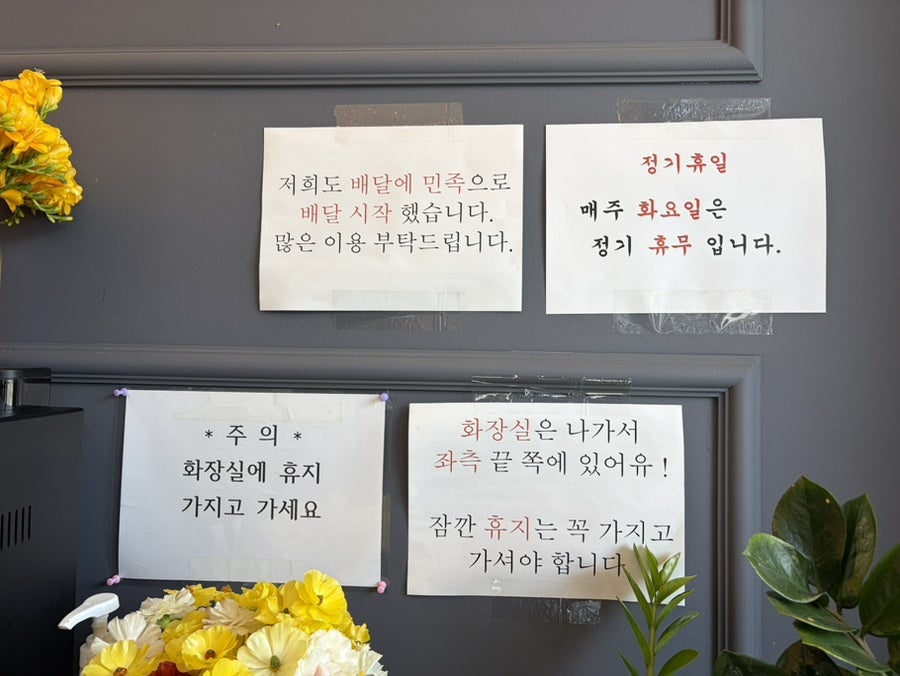 저희도 배달에 민족으로
배달 시작 했습니다.
많은 이용 부탁드립니다.
정기휴일
매주 화요일은
정기 휴무 입니다.
* 주 의 *
화장실에 휴지
가지고 가세요
화장실은 나가서
좌측 끝 쪽에 있어유 !
잠깐 휴지는 꼭 가지고
가셔야 합니다